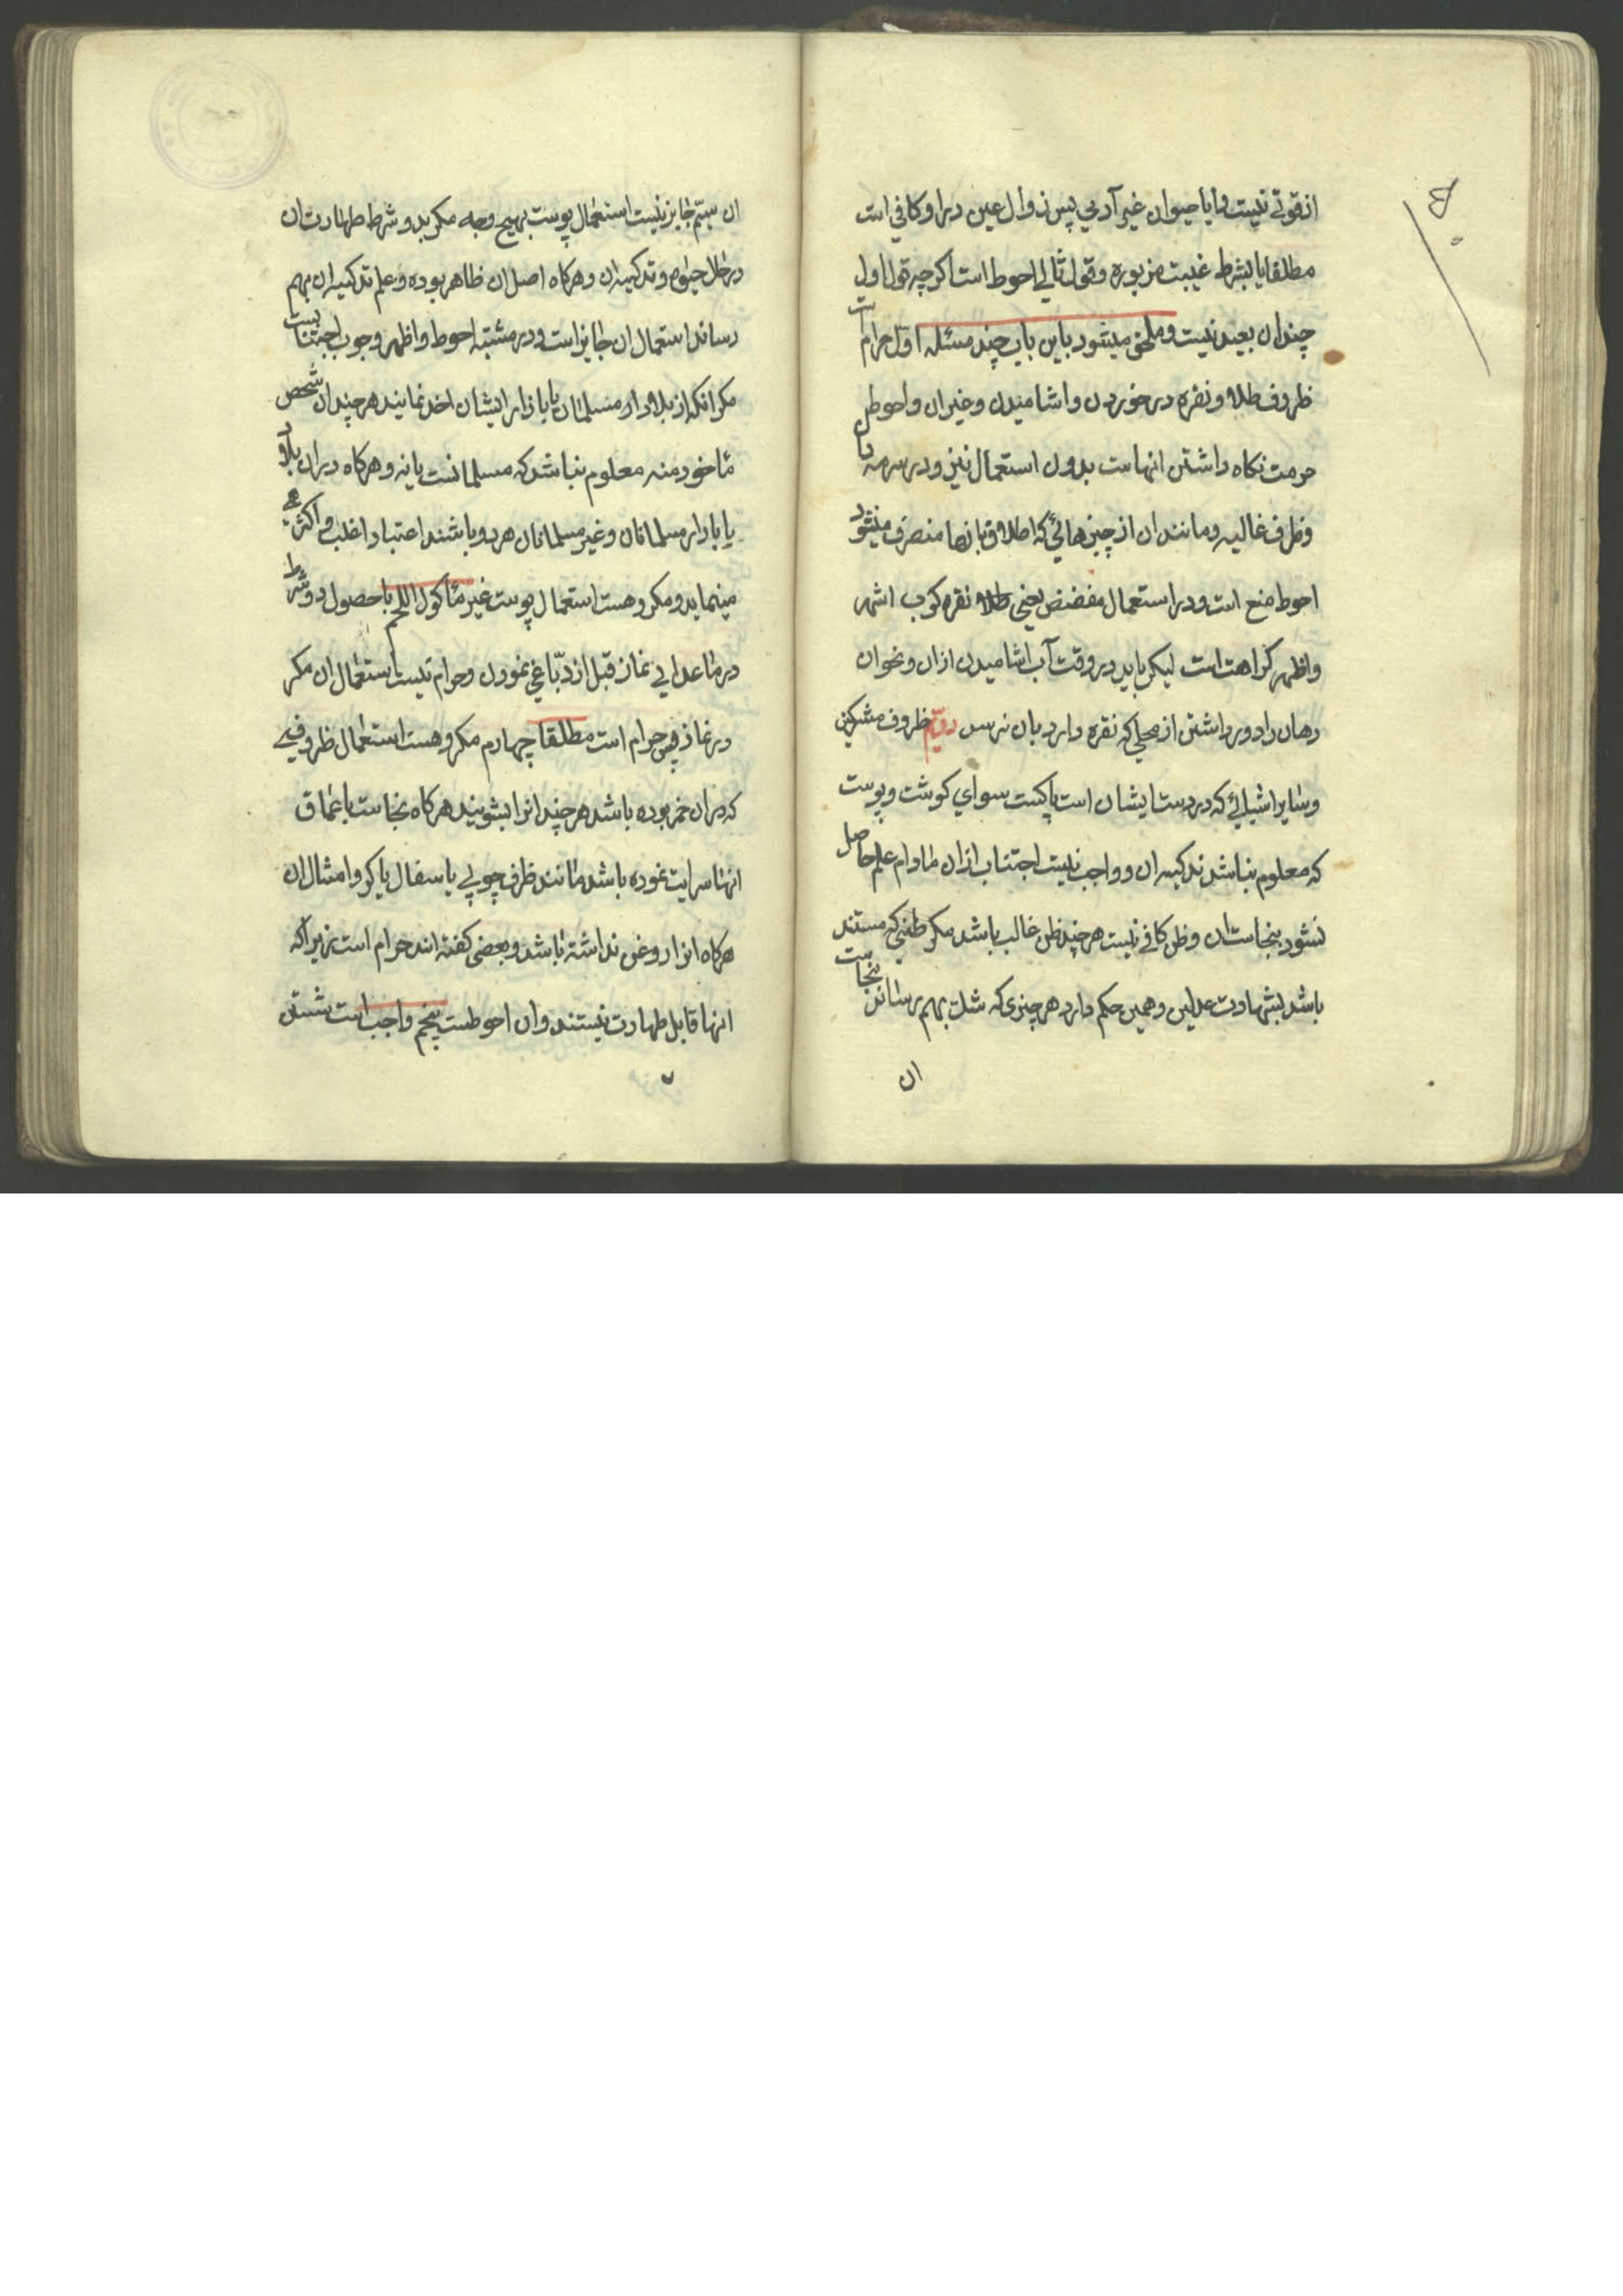 از قوتی نیست و ایا حیوان غیر آدمی پس زوال عین در او کافی است
مطلقا یا بشرط غیبت مزبوره و قول ثانی احوط است اکرچه قول اول
چندان بعید نیست و ملحق میشود باین باب چند مسئله اول حرام است
ظروف طلا و نقره در خوردن و اشامیدن و غیر ان و احوط
حرمت نکاه داشتن انهاست بدون استعمال نیز و در سرمه دان
و ظرف غالیه و مانند ان از چیزهائی که اطلاق بانها منصرف میشود
احوط منع است و در استعمال مفضض یعنی طلا نقره کوب اشهر
و اظهر کراهت است لیکن باید در وقت آب اشامیدن ازان و نحو ان
دهان را دور داشتن از محلی که نقره دارد بان نرسد دویم ظروف مشرکین
و سایر اشیائی که در دست ایشان است پاکست سوای کوشت و پوست
که معلوم نباشد تذکیه ان و واجب نیست اجتناب ازان مادام علم حاصل
نشود بنجاست ان و ظن کافی نیست هرچند ظن غالب باشد مکر ظنی که مستند
باشد بشهادت عدلین و همین حکم دارد هر چیزی که شک بهم رسد در نجاست
ان
ان سیّم جایز نیست استعمال پوست بهیچ وجه مکر بدو شرط طهارت ان
در حال حیوة و تذکیه ان و هرکاه اصل ان ظاهر بوده و علم تذکیه ان بهم
رساند استعمال ان جایز است و در مشتبه احوط و اظهر وجوب اجتنابست
مکر انکه از بلاد مسلمانان یا بازار ایشان اخذ نمایند هرچند ان شخص
ماخوذ منه معلوم نباشد که مسلمانست یا نه و هرکاه در ان بلاد
یا بازار مسلمانان و غیر مسلمانان هر دو باشند اعتبار اغلب و اکثر
مینماید و مکروهست استعمال پوست غیر مأکول اللحم با حصول دو شرط
در ماعدای نماز قبل از دبّاغی نمودن و حرام نیست استعمال ان مکر
در نماز پس حرام است مطلقا چهارم مکروهست استعمال ظروفی
که در ان خمر بوده باشد هرچند انرا بشویند هرکاه نجاست باعماق
انها سرایت نموده باشد مانند ظرف چوبی یا سفال یا کدو امثال ان
هرکاه انرا روغن نداشته باشد و بعضی کفته اند حرام است زیرا که
انها قابل طهارت نیستند و ان احوطست پنجم واجب است شستن